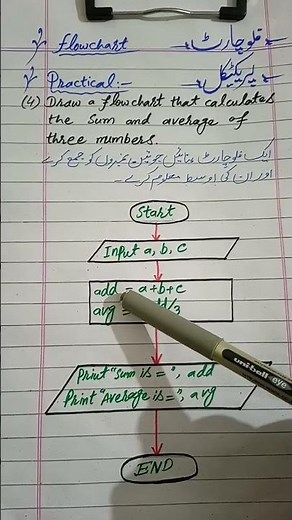 Flowchart فلوچارٹ
Practical:- پریکٹیکل
(4) Draw a flowchart that calculates
the Sum and average of
three numbers.
ایک فلوچارٹ بنائیں جو تین نمبروں کو جمع کرے
اور ان کی اوسط معلوم کرے۔
Start
Input a, b, c
add = a+b+c
avg = dd/3
Print "Sum is =", add
Print "Average is =", avg
END
uni-ball eye